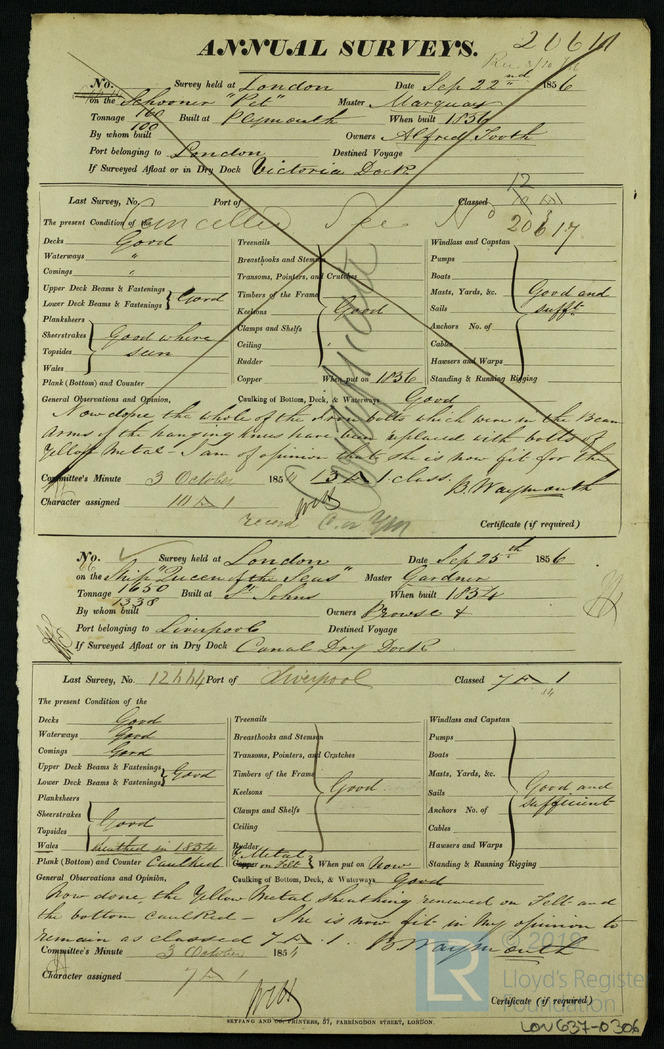 ANNUAL SURVEYS.
No. Survey held at London Date Sep 22nd 1856
on the Schooner "Pet" Master Marquay
Tonnage 160 Built at Plymouth When built 1836
100
By whom built Owners Alfred Tooth
Port belonging to London Destined Voyage
If Surveyed Afloat or in Dry Dock Victoria Dock
12
Last Survey, No. Port of Classed
The present Condition of the Cancelled See No 20617
Decks Good Treenails Windlass and Capstan
Waterways " Breasthooks and Stemson Pumps
Comings " Transoms, Pointers, and Crutches Boats
Upper Deck Beams & Fastenings Timbers of the Frame Masts, Yards, &c. Good and
Lower Deck Beams & Fastenings Good Keelsons Good Sails sufft
Planksheers Clamps and Shelfs Anchors No. of
Sheerstrakes Good where Ceiling " Cables
Topsides seen Rudder Hawsers and Warps
Wales Copper When put on 1836 Standing & Running Rigging
Plank (Bottom) and Counter
General Observations and Opinion, Caulking of Bottom, Deck, & Waterways Good
Now done the whole of the Iron bolts which were in the Beam
Arms of the hanging knees have been replaced with bolts of
Yellow Metal - I am of opinion that she is now fit for the
Committee's Minute 3 October 185 A 1 class. B. Waymouth
Character assigned 10 A 1
Certificate (if required)
No. Survey held at London Date Sep 25th 1856
on the Ship "Queen of the Seas" Master Gardner
Tonnage 1650 Built at St Johns When built 1854
1338
By whom built Owners Prowse &
Port belonging to Liverpool Destined Voyage
If Surveyed Afloat or in Dry Dock Canal Dry Dock
Last Survey, No. Port of Liverpool Classed 7 A 1
14
The present Condition of the
Decks Good Treenails Windlass and Capstan
Waterways Good Breasthooks and Stemson Pumps
Comings Good Transoms, Pointers, and Crutches Boats
Upper Deck Beams & Fastenings Timbers of the Frame Masts, Yards, &c.
Lower Deck Beams & Fastenings Good Keelsons Good Sails Good and
Planksheers Clamps and Shelfs Anchors No. of sufficient
Sheerstrakes Good Ceiling Cables
Topsides Rudder Hawsers and Warps
Wales sheathed in 1854 Metal
Plank (Bottom) and Counter Caulked on Felt When put on Now Standing & Running Rigging
General Observations and Opinion, Caulking of Bottom, Deck, & Waterways Good
Now done, the Yellow Metal Sheathing renewed on Felt and
the bottom Caulked - She is now fit in my opinion to
remain as classed 7 A 1. B Waymouth
Committee's Minute 3 October 185
Character assigned 7 A 1
Certificate (if required)
SEYFANG AND CO. PRINTERS, 57, FARRINGDON STREET, LONDON.
LR © 2019
Lloyd's Register
Foundation
LON637-0306